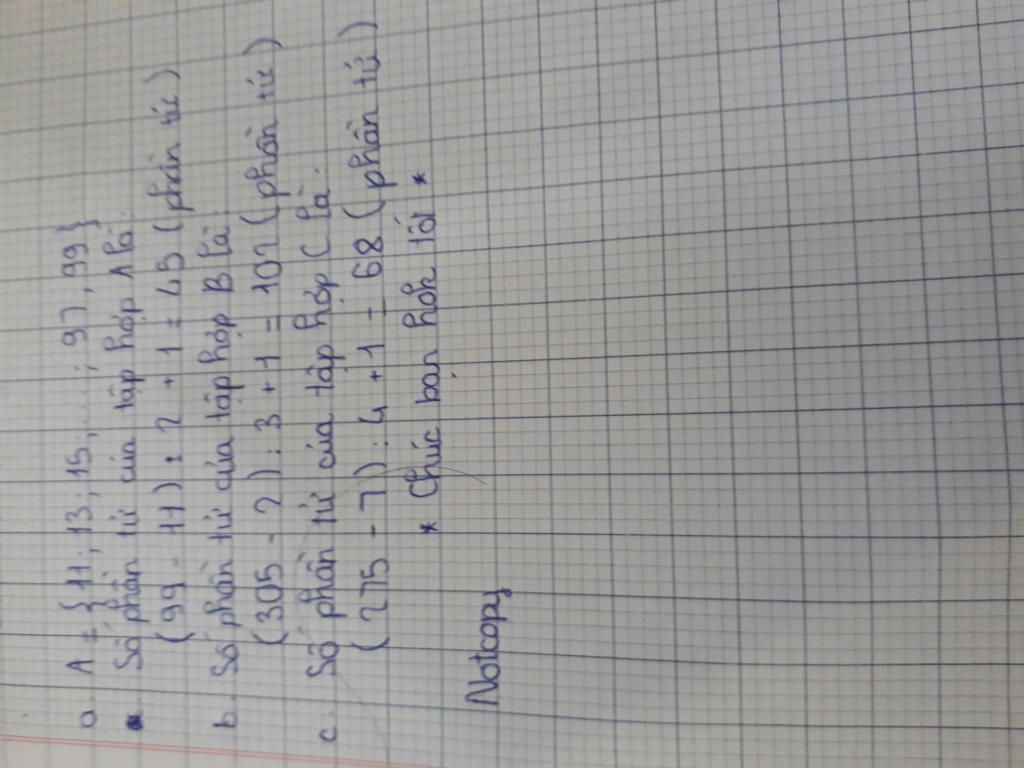 a. A = { 11 ; 13 ; 15 ; ..... ; 97 , 99 }
Số phần tử của tập hợp A là:
( 99 - 11 ) : 2 + 1 = 45 ( phần tử )
b. Số phần tử của tập hợp B là:
( 305 - 2 ) : 3 + 1 = 102 ( phần tử )
c. Số phần tử của tập hợp C là:
( 275 - 7 ) : 4 + 1 = 68 ( phần tử )
* Chúc bạn hok tốt *
Notcopy